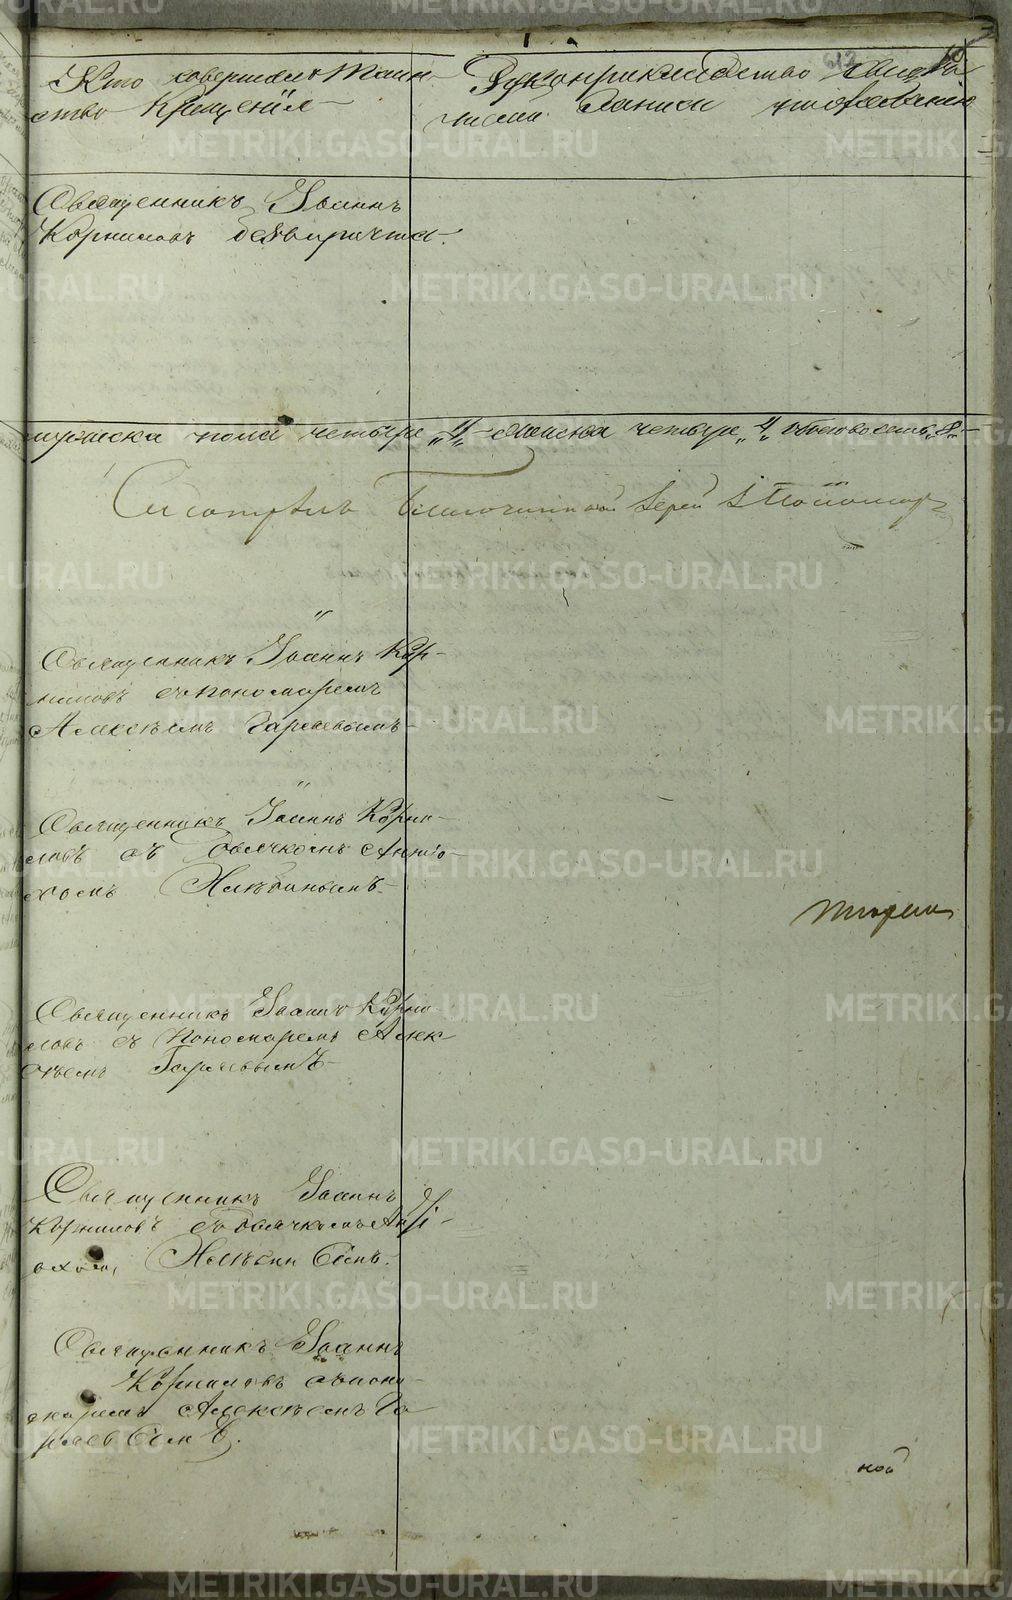 Кто совершалъ Таин-
ство Крещенія
Рукоприкладство свидѣ
записи по желанію
Священникъ Іоаннъ
Корниловъ безъ причта.
мужеска пола четыре „4„ женска четыре „4„ обоего восемь „8„
Смотрѣлъ Благочинной Іерей І. Пономар
Священникъ Іоаннъ Кор-
ниловъ съ пономаремъ
Алексѣемъ Гаряевымъ
Священникъ Іоаннъ Корни-
ловъ съ Дьячкомъ Антіо-
хомъ
Священникъ Іоаннъ Корни-
ловъ съ Пономаремъ Алек-
сѣемъ Гаряевымъ
Священникъ Іоаннъ
Корниловъ съ Дьячкомъ Анті-
охомъ
Священникъ Іоаннъ
Корниловъ съ поно-
маремъ Алексѣемъ Га
ряевымъ.
ной
METRIKI.GASO-URAL.RU